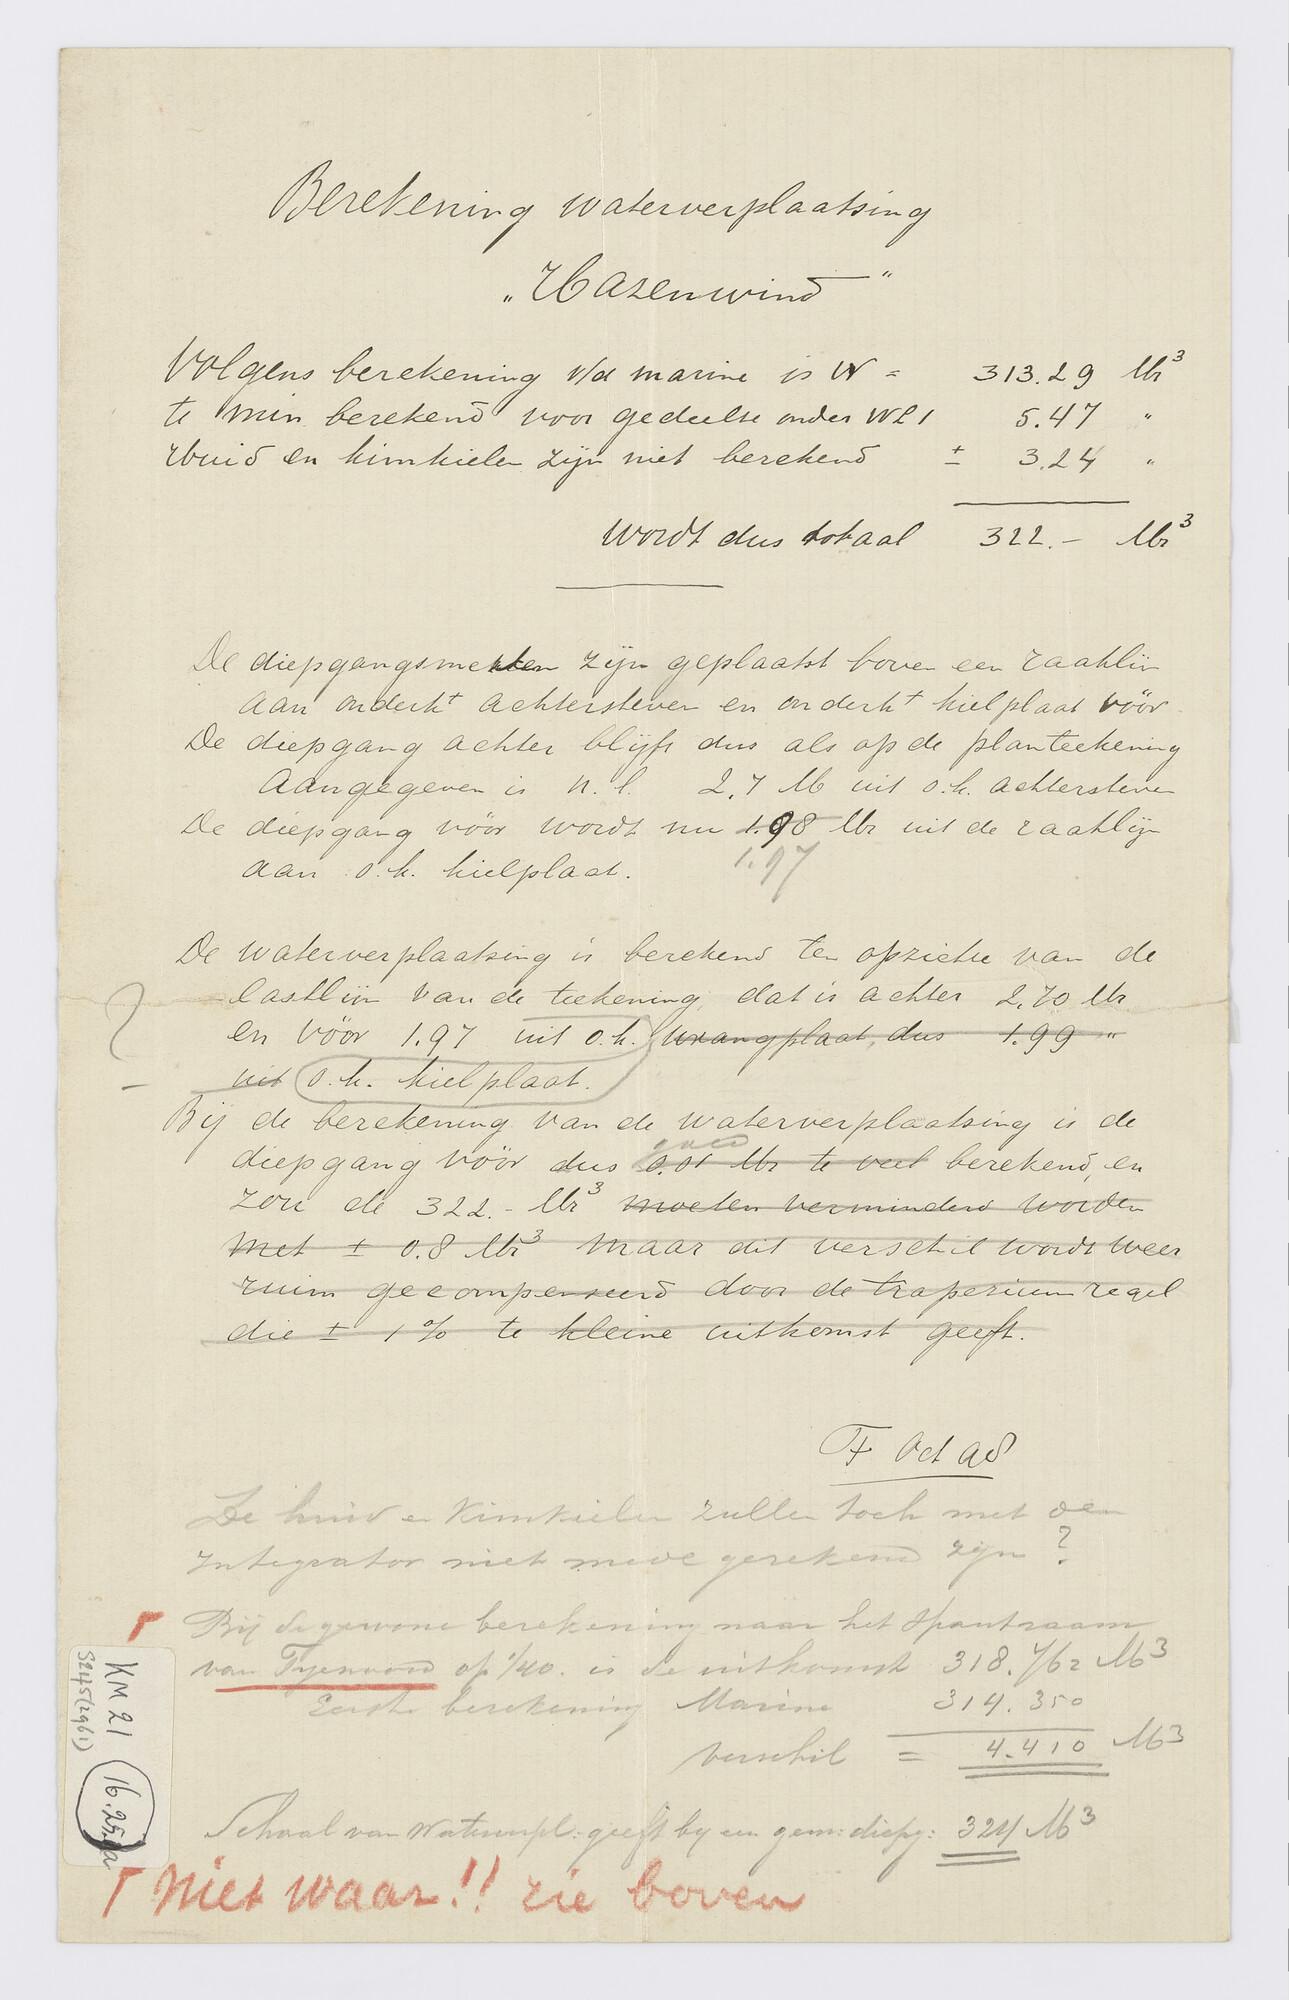 Berekening waterverplaatsing
„Hazenwind"
Volgens berekening v/d marine is W = 313.29 M³
te min berekend voor gedeelte onder WL1 5.47 "
Huid en kimkielen zijn niet berekend ± 3.24 "
Wordt dus totaal 322.- M³
De diepgangsmerken zijn geplaatst boven een raaklijn
aan onderkt achtersteven en onderkt kielplaat vóór
De diepgang achter blijft dus als op de planteekening
aangegeven is n.l. 2,7 M uit o.k. achtersteven
De diepgang vóór wordt nu 1.98 M uit de raaklijn
1.97
aan o.k. kielplaat.
De waterverplaatsing is berekend ten opzichte van de
lastlijn van de teekening, dat is achter 2,70 M
? en vóór 1.97 uit o.k. wrangplaat, dus 1.99 "
uit o.k. kielplaat.
Bij de berekening van de waterverplaatsing is de
goed
diepgang vóór dus 0.01 M te veel berekend, en
zou de 322.- M³ moeten verminderd worden
met ± 0.8 M³ maar dit verschil wordt weer
ruim gecompenseerd door de trapeziumregel
die ± 1% te kleine uitkomst geeft.
F Oct 08
De huid en Kimkielen zullen toch met den
Integrator niet mede gerekend zijn ?
Bij de gewone berekening naar het Spantraam
van Fyenoord op 1/40. is de uitkomst 318.762 M³
Eerste berekening Marine 314.350
verschil = 4.410 M³
Schaal van Waterverpl: geeft by een gem: diepg: 324 M³
Niet waar!! zie boven
KM 21
16.25.a
S2475(2961)